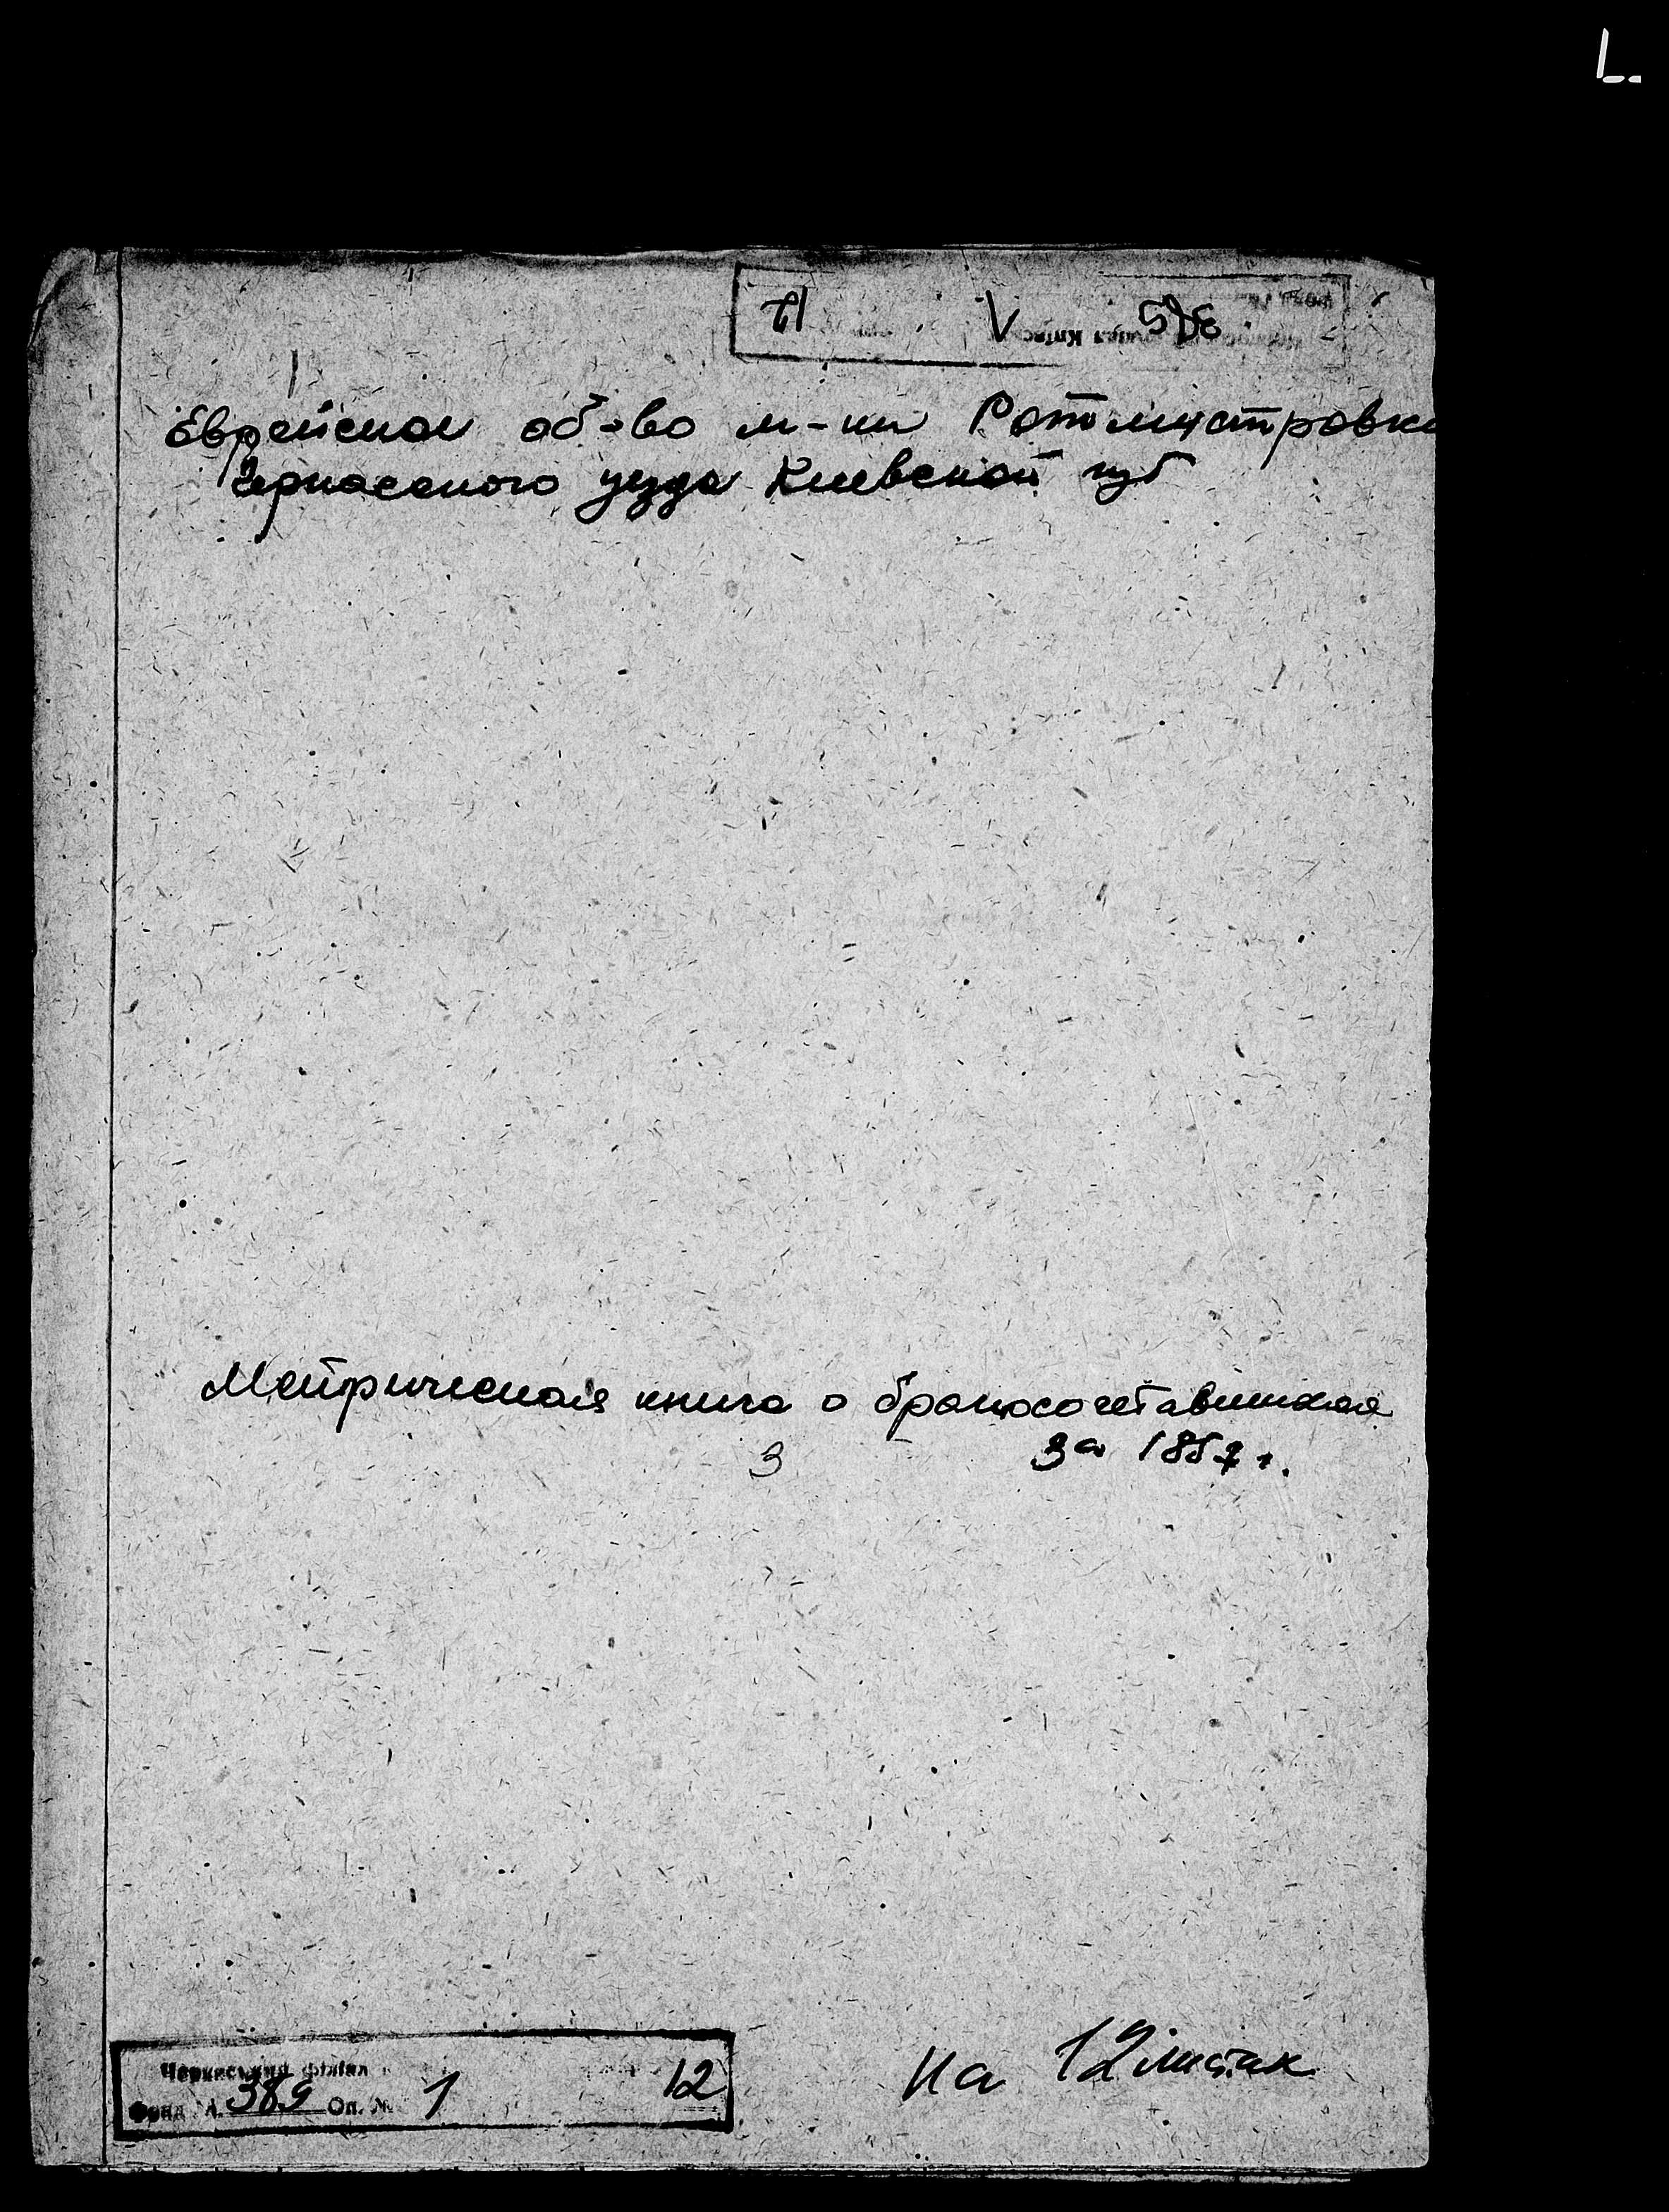 Еврейское об-во м-ки Ротмистровки
Черкасского уезда Киевской губ
Метрическая книга о бракосочетавшихся
3
за 1857 г.
Черкаський філіал
Фонд №. 389 Оп. № 1 12
на 12 листах